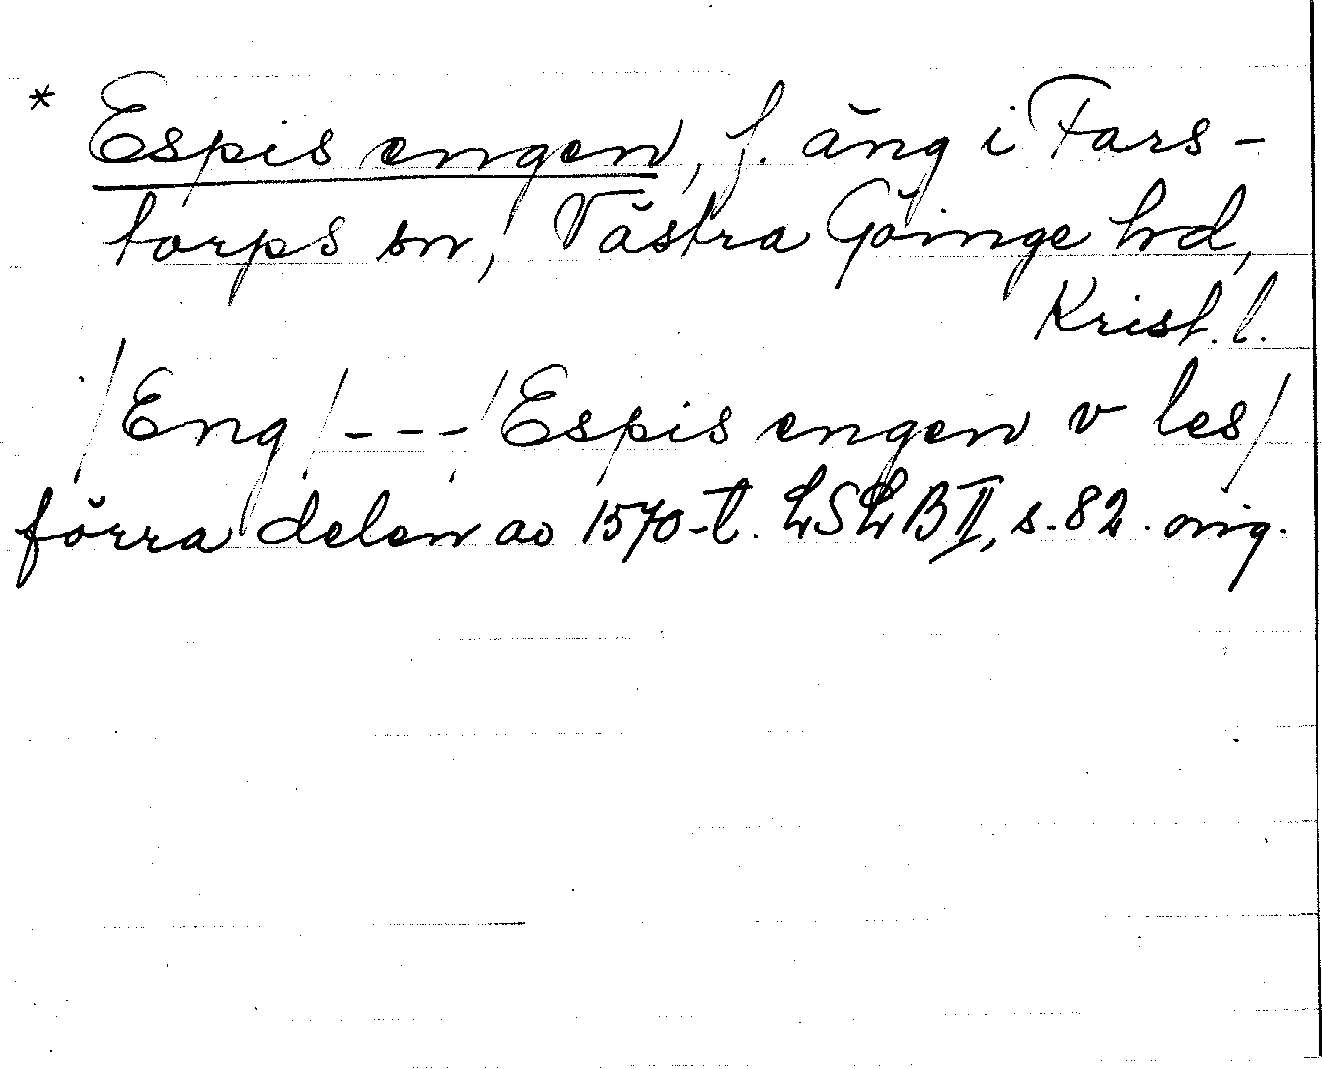 * Espis engen, f. äng i Fars-
torps sn, Västra Göinge hrd,
Krist. l.
/Eng/---/Espis engen v les/
förra delen av 1570-t. LSLB II, s. 82. orig.